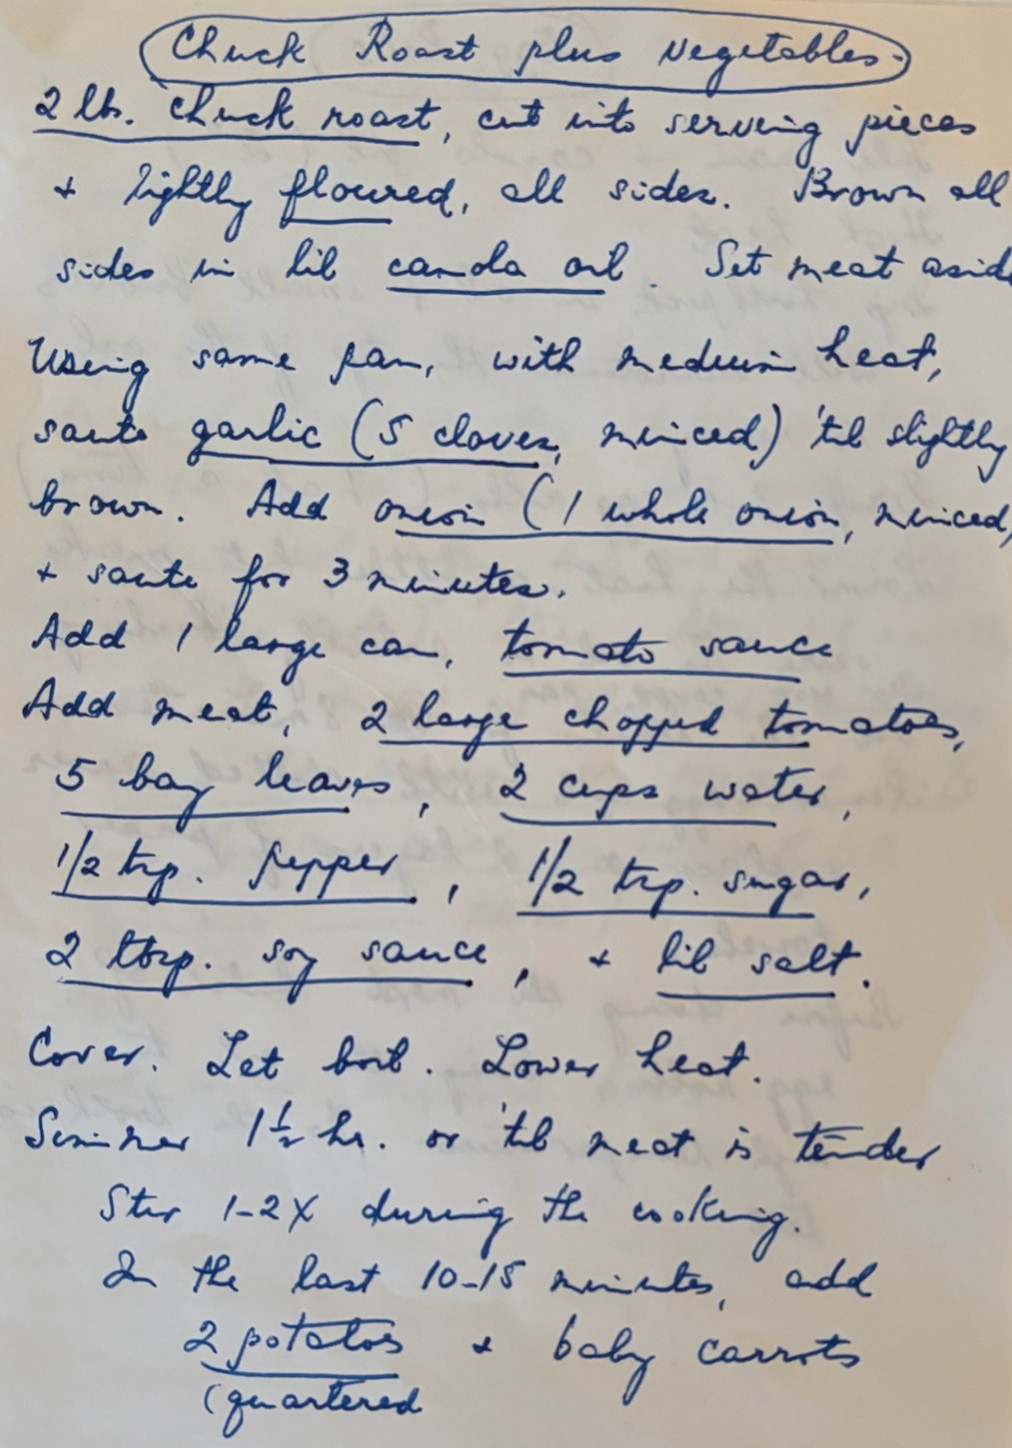 Chuck Roast plus Vegetables.
2 lbs. Chuck roast, cut into serving pieces
+ lightly floured, all sides. Brown all
sides in lil canola oil. Set meat aside
Using same pan, with medium heat,
saute garlic (5 cloves, minced) 'til slightly
brown. Add onion (1 whole onion, minced)
+ saute for 3 minutes.
Add 1 large can, tomato sauce
Add meat, 2 large chopped tomatoes,
5 bay leaves, 2 cups water,
1/2 tsp. pepper, 1/2 tsp. sugar,
2 tbsp. soy sauce, + lil salt.
Cover. Let boil. Lower heat.
Simmer 1 1/2 hr. or 'til meat is tender
Stir 1-2X during the cooking.
In the last 10-15 minutes, add
2 potatoes + baby carrots
(quartered